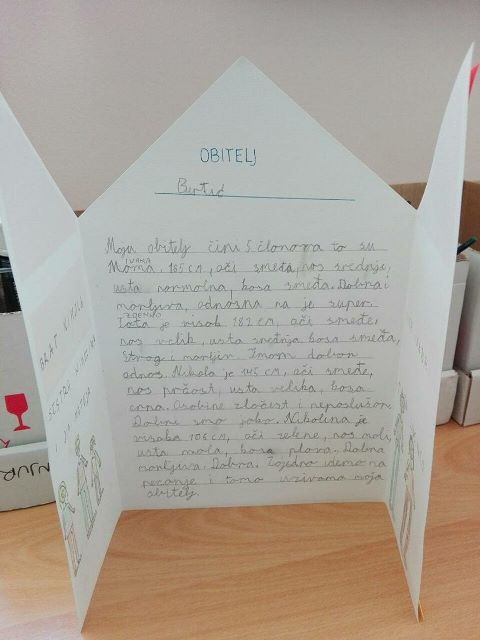 OBITELJ
Bertić
Moju obitelj čini 5 članova to su
IVANA
Mama. 165 cm, oči smeđa, nos srednji,
usta normalna, kosa smeđa. Dobra i
marljiva, odnosna na je super.
ZDENKO
Tata je visok 182 cm, oči smeđe,
nos velik, usta srednja kosa smeđa,
Strog i marljiv. Imam dobar
odnos. Nikola je 145 cm, oči smeđe,
nos prčast, usta velika, kosa
crna. Osobine zločest i neposlušan.
Dobri smo jako. Nikolina je
visoka 106 cm, oči zelene, nos mali,
usta mala, kosa plava. Dobra
marljiva. Dobra. Zajedno idemo na
pecanje i tamo uživamo moja
obitelj.
BRAT NIKOLA
SESTRA NIKOLINA
I JA